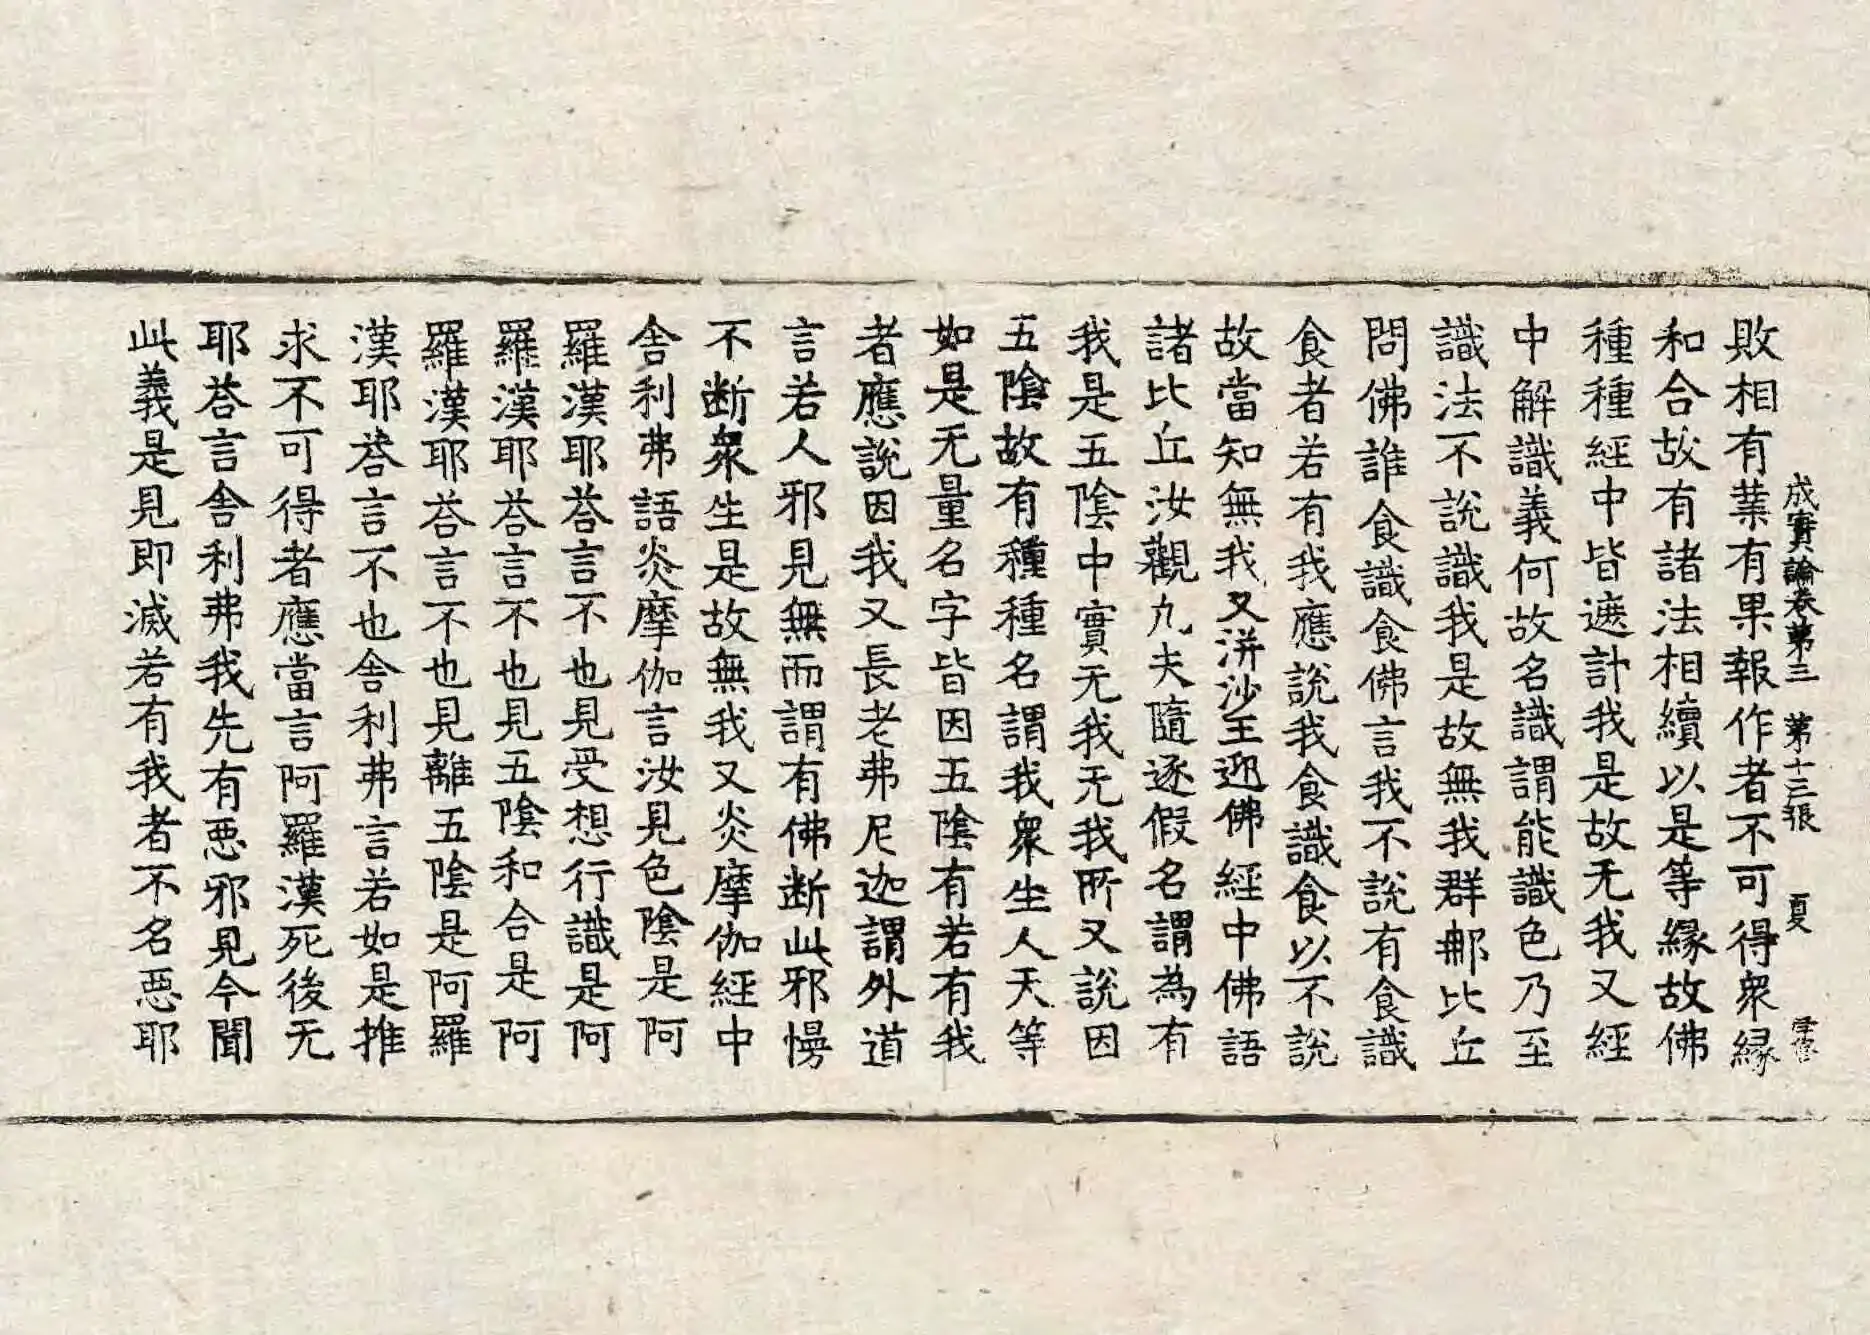 成實論卷第三　第十三張　夏
敗相有業有果報作者不可得衆緣
和合故有諸法相續以是等緣故佛
種種經中皆遮計我是故无我又經
中解識義何故名識謂能識色乃至
識法不說識我是故無我群那比丘
問佛誰食識食佛言我不說有食識
食者若有我應說我食識食以不說
故當知無我又洴沙王迎佛經中佛語
諸比丘汝觀九夫隨逐假名謂為有
我是五陰中實无我无我所又說因
五陰故有種種名謂我衆生人天等
如是无量名字皆因五陰有若有我
者應說因我又長老弗尼迦謂外道
言若人邪見無而謂有佛断此邪慢
不断衆生是故無我又炎摩伽經中
舍利弗語炎摩伽言汝見色陰是阿
羅漢耶荅言不也見受想行識是阿
羅漢耶荅言不也見五陰和合是阿
羅漢耶荅言不也見離五陰是阿羅
漢耶荅言不也舍利弗言若如是推
求不可得者應當言阿羅漢死後无
耶荅言舍利弗我先有惡邪見今聞
此義是見即滅若有我者不名惡耶